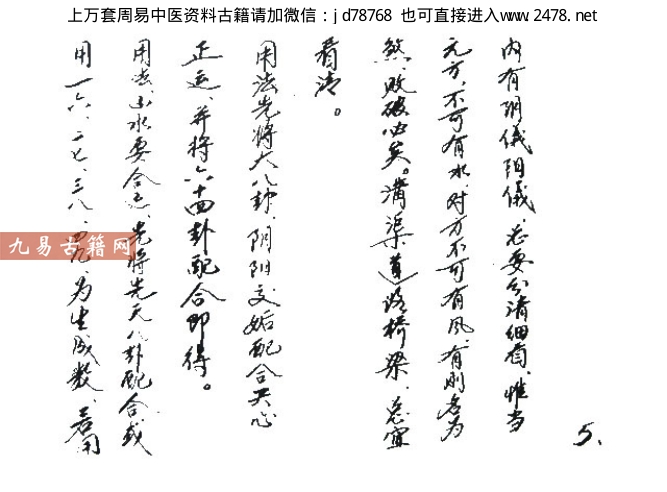 上万套周易中医资料古籍请加微信：jd78768 也可直接进入www.2478.net
内有阴仪阳仪、总要分清细看、惟当
元方、不可有水、对方不可有风、有则名为
煞、败破必矣。溝渠道路桥梁、总宜
看清。
用法先将大八卦、阴阳交姤配合天心
正运、并将六十四卦配合即得。
用法、山水要合运、先将先天八卦配合或
用一六、二七、三八、四九、为生成数、若用
5.
九易古籍网